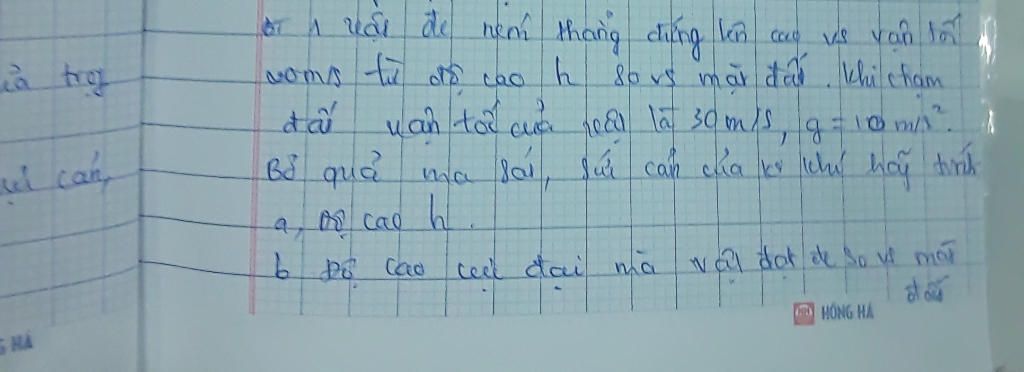 1 vật đc ném thẳng đứng lên cao vs vận tốc
20m/s từ độ cao h so vs mặt đất. Khi chạm
đất vận tốc của vật là 30m/s, g = 10 m/s².
Bỏ quả ma sát, sức cản của kk khí hãy tính
a, Độ cao h.
b Độ cao cực đại mà vật đạt đc so vs mặt
đất
HỒNG HÀ